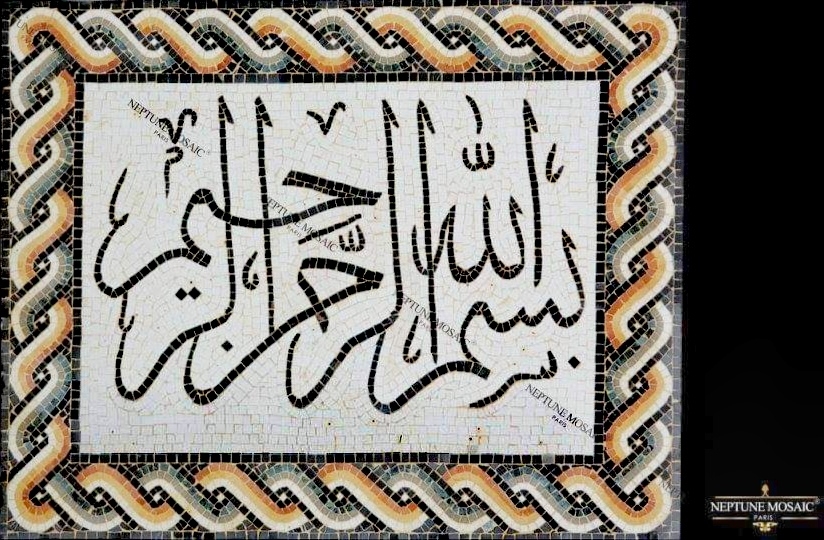 بسم الله الرحمن الرحيم
NEPTUNE MOSAIC®
PARIS
NEPTUNE MOSAIC®
PARIS
NEPTUNE MOSAIC®
PARIS
NEPTUNE MOSA
PARIS
NEPTUNE MOSAIC®
PARIS